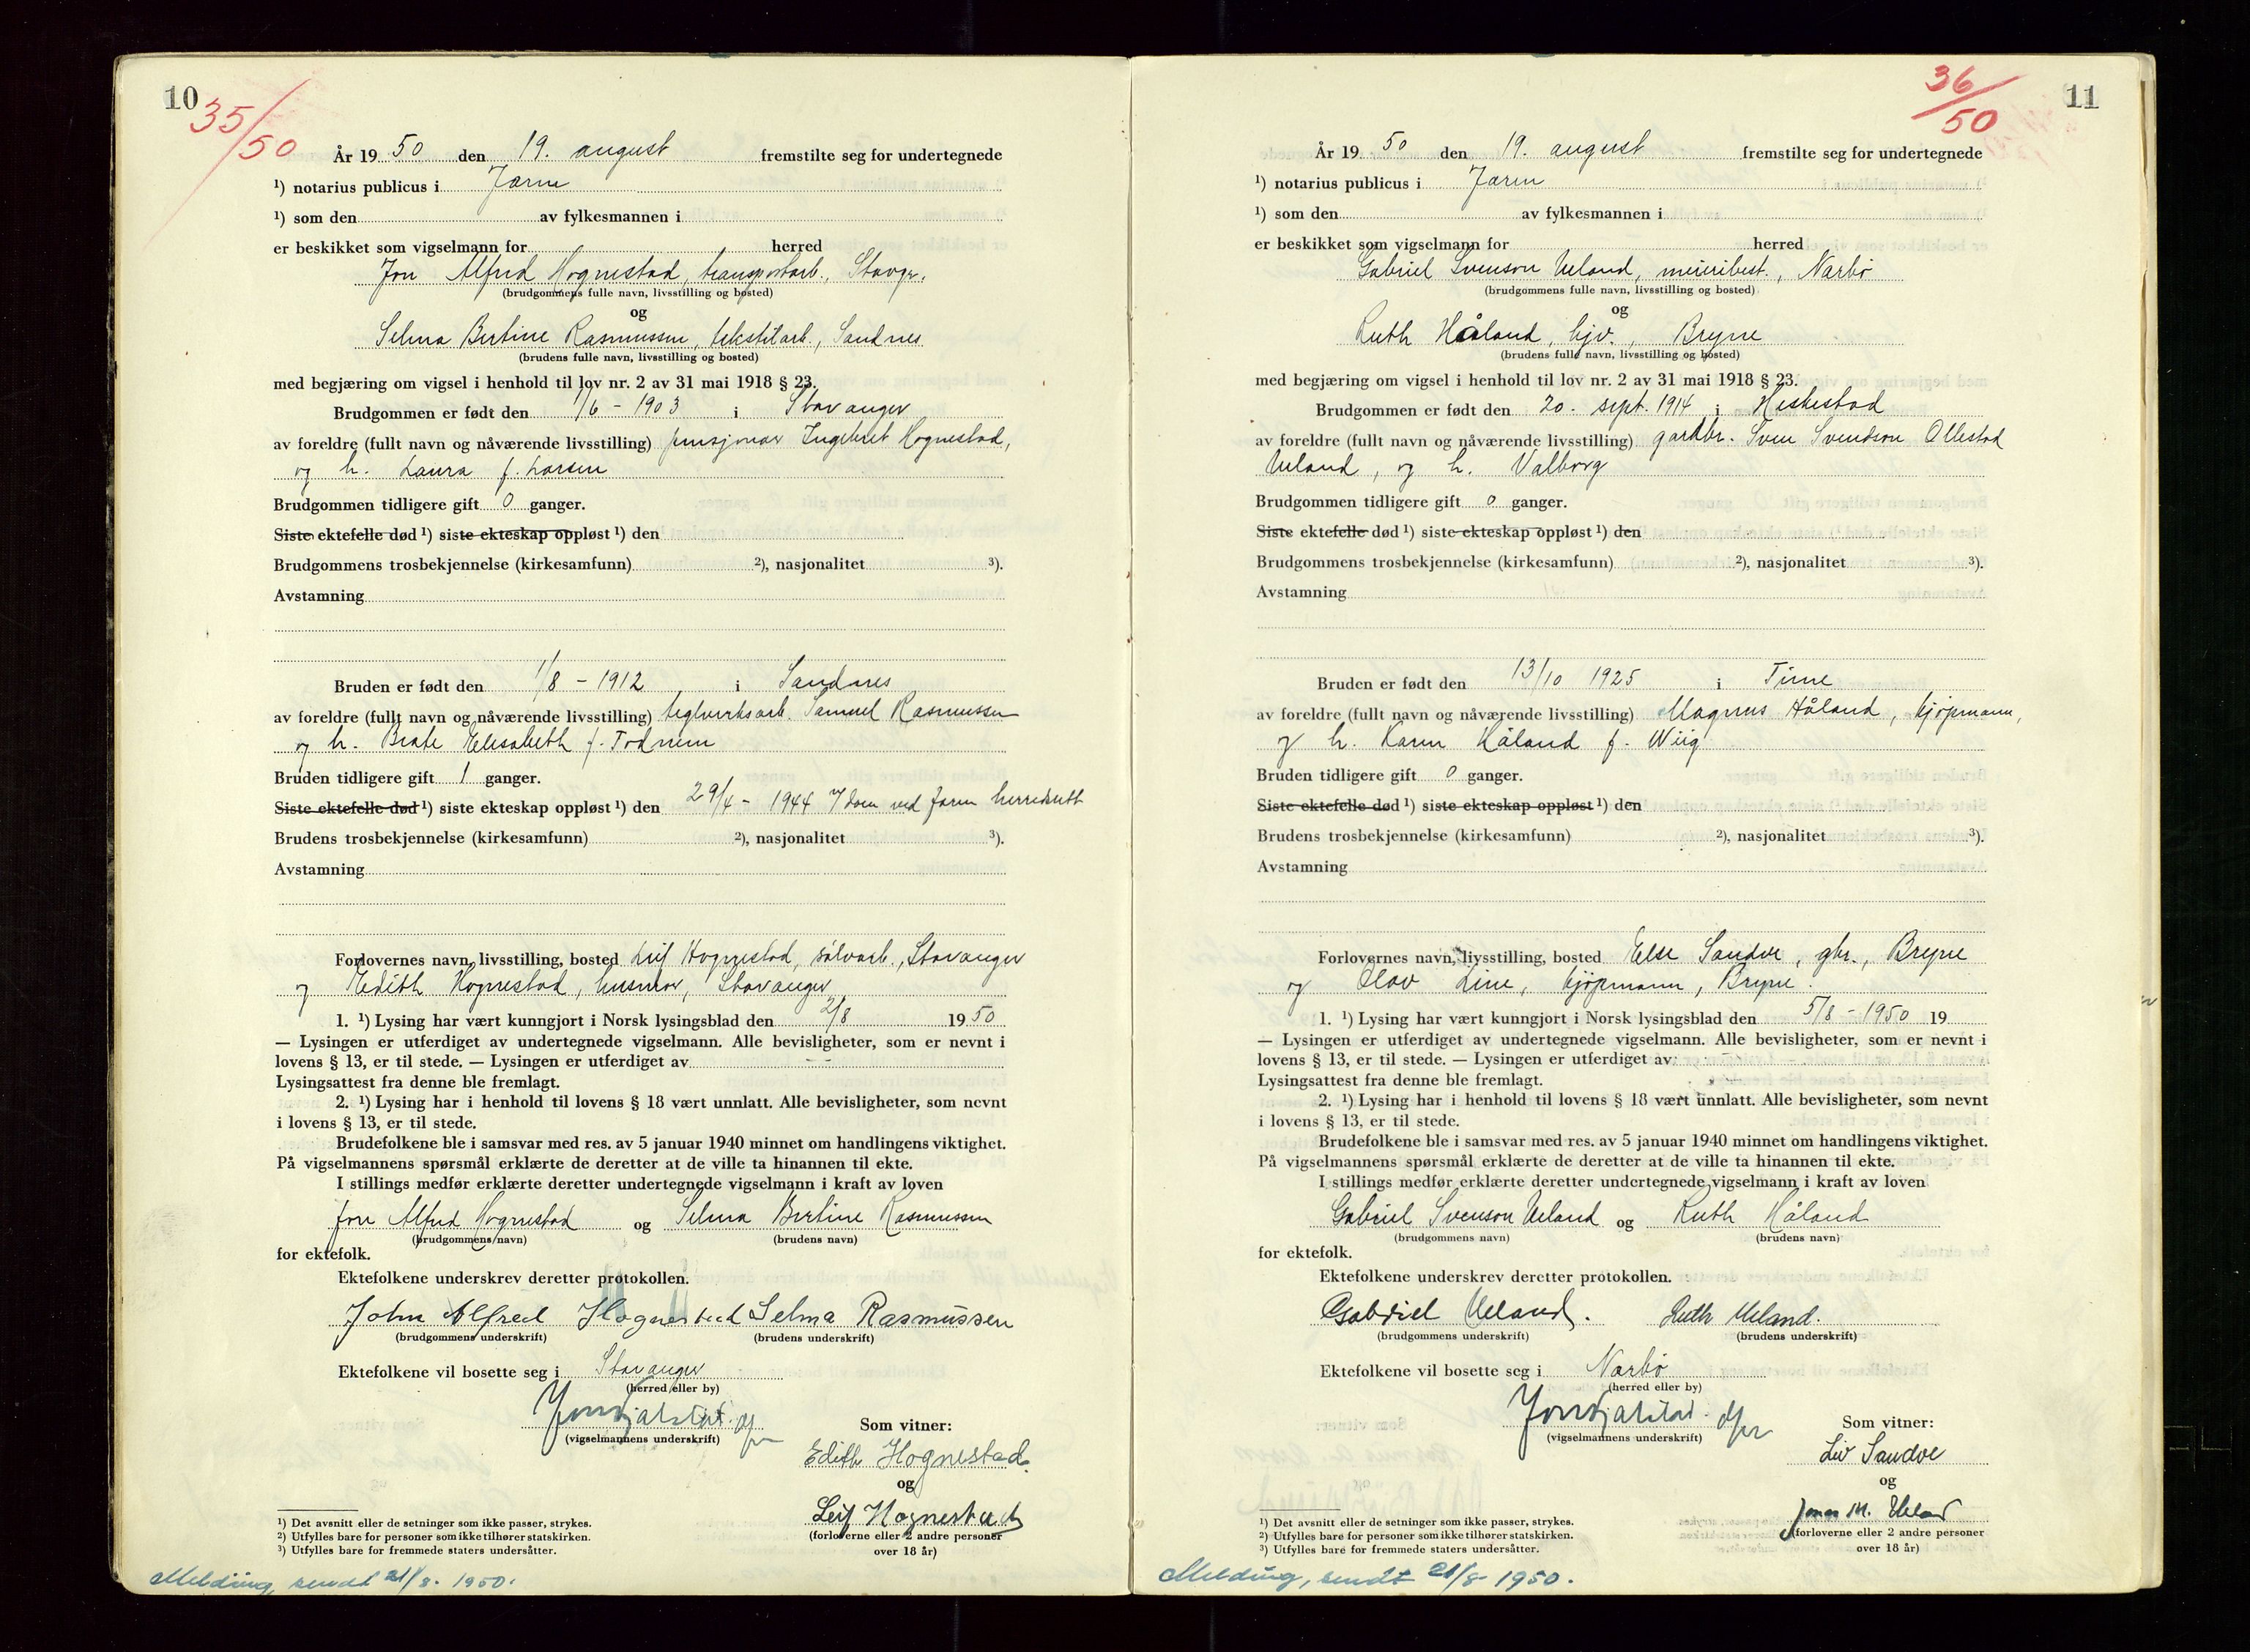 10
35/50
År 19 50 den 19. august fremstilte seg for undertegnede
¹) notarius publicus i Jæren
¹) som den av fylkesmannen i
er beskikket som vigselmann for herred
Jon Alfred Hognestad, transportarb., Stavgr.
(brudgommens fulle navn, livsstilling og bosted)
og
Selma Bertine Rasmussen, tekstilarb., Sandnes
(brudens fulle navn, livsstilling og bosted)
med begjæring om vigsel i henhold til lov nr. 2 av 31 mai 1918 § 23.
Brudgommen er født den 1/6 - 1903 i Stavanger
av foreldre (fullt navn og nåværende livsstilling) pensjonær Ingebret Hognestad,
og h. Laura f. Larsen
Brudgommen tidligere gift 0 ganger.
Siste ektefelle død ¹) siste ekteskap oppløst ¹) den
Brudgommens trosbekjennelse (kirkesamfunn) ²), nasjonalitet ³).
Avstamning
Bruden er født den 1/8 - 1912 i Sandnes
av foreldre (fullt navn og nåværende livsstilling) teglverksarb. Samuel Rasmussen
og h. Beate Elisabeth f. Todnem
Bruden tidligere gift 1 ganger.
Siste ektefelle død ¹) siste ekteskap oppløst ¹) den 29/4 - 1944 v/dom ved Jæren herredsrett
Brudens trosbekjennelse (kirkesamfunn) ²), nasjonalitet ³).
Avstamning
Forlovernes navn, livsstilling, bosted Leif Hognestad, sølvarb., Stavanger
og Edith Hognestad, husmor, Stavanger
1. ¹) Lysing har vært kunngjort i Norsk lysingsblad den 2/8 19 50
— Lysingen er utferdiget av undertegnede vigselmann. Alle bevisligheter, som er nevnt i
lovens § 13, er til stede. — Lysingen er utferdiget av
Lysingsattest fra denne ble fremlagt.
2. ¹) Lysing har i henhold til lovens § 18 vært unnlatt. Alle bevisligheter, som nevnt
i lovens § 13, er til stede.
Brudefolkene ble i samsvar med res. av 5 januar 1940 minnet om handlingens viktighet.
På vigselmannens spørsmål erklærte de deretter at de ville ta hinannen til ekte.
I stillings medfør erklærte deretter undertegnede vigselmann i kraft av loven
Jon Alfred Hognestad og Selma Bertine Rasmussen
(brudgommens navn) (brudens navn)
for ektefolk.
Ektefolkene underskrev deretter protokollen.
John Alfred Hognestad Selma Rasmussen
(brudgommens underskrift) (brudens underskrift)
Ektefolkene vil bosette seg i Stavanger
(herred eller by)
(vigselmannens underskrift)
Som vitner:
Edith Hognestad.
og
Leif Hognestad
(forloverne eller 2 andre personer
over 18 år)
¹) Det avsnitt eller de setninger som ikke passer, strykes.
²) Utfylles bare for personer som ikke tilhører statskirken.
³) Utfylles bare for fremmede staters undersåtter.
Melding sendt 21/8. 1950.
11
36/50
År 19 50 den 19. august fremstilte seg for undertegnede
¹) notarius publicus i Jæren
¹) som den av fylkesmannen i
er beskikket som vigselmann for herred
Gabriel Svenson Ueland, meieribest., Nærbø
(brudgommens fulle navn, livsstilling og bosted)
og
Ruth Håland, hjv., Bryne
(brudens fulle navn, livsstilling og bosted)
med begjæring om vigsel i henhold til lov nr. 2 av 31 mai 1918 § 23.
Brudgommen er født den 20. sept. 1914 i Heskestad
av foreldre (fullt navn og nåværende livsstilling) gardbr. Sven Svendson Ollestad
Ueland, og h. Valborg
Brudgommen tidligere gift 0 ganger.
Siste ektefelle død ¹) siste ekteskap oppløst ¹) den
Brudgommens trosbekjennelse (kirkesamfunn) ²), nasjonalitet ³).
Avstamning
Bruden er født den 13/10 1925 i Time
av foreldre (fullt navn og nåværende livsstilling) Magnus Håland, kjøpmann,
og h. Karen Håland f. Wiig
Bruden tidligere gift 0 ganger.
Siste ektefelle død ¹) siste ekteskap oppløst ¹) den
Brudens trosbekjennelse (kirkesamfunn) ²), nasjonalitet ³).
Avstamning
Forlovernes navn, livsstilling, bosted Else Sandve, gbr., Bryne
og Olav Line, kjøpmann, Bryne.
1. ¹) Lysing har vært kunngjort i Norsk lysingsblad den 5/8 - 1950 19
— Lysingen er utferdiget av undertegnede vigselmann. Alle bevisligheter, som er nevnt i
lovens § 13, er til stede. — Lysingen er utferdiget av
Lysingsattest fra denne ble fremlagt.
2. ¹) Lysing har i henhold til lovens § 18 vært unnlatt. Alle bevisligheter, som nevnt
i lovens § 13, er til stede.
Brudefolkene ble i samsvar med res. av 5 januar 1940 minnet om handlingens viktighet.
På vigselmannens spørsmål erklærte de deretter at de ville ta hinannen til ekte.
I stillings medfør erklærte deretter undertegnede vigselmann i kraft av loven
Gabriel Svenson Ueland og Ruth Håland
(brudgommens navn) (brudens navn)
for ektefolk.
Ektefolkene underskrev deretter protokollen.
Gabriel Ueland. Ruth Ueland.
(brudgommens underskrift) (brudens underskrift)
Ektefolkene vil bosette seg i Nærbø
(herred eller by)
(vigselmannens underskrift)
Som vitner:
Liv Sandve
og
Jonas M. Ueland
(forloverne eller 2 andre personer
over 18 år)
¹) Det avsnitt eller de setninger som ikke passer, strykes.
²) Utfylles bare for personer som ikke tilhører statskirken.
³) Utfylles bare for fremmede staters undersåtter.
Melding, sendt 21/8 1950.